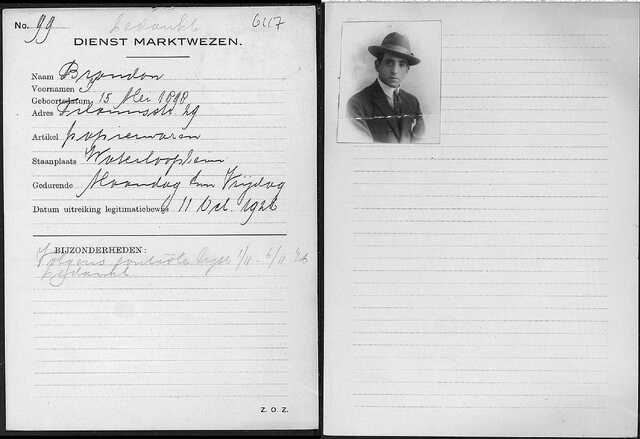 No. 99 bedankt 6117
DIENST MARKTWEZEN.
Naam Brandon
Voornamen J
Geboortedatum 15 Mei 1898
Adres 29
Artikel papierwaren
Staanplaats Waterlooplein
Gedurende Maandag t/m Vrijdag
Datum uitreiking legitimatiebewijs 11 Oct. 1926
BIJZONDERHEDEN:
Volgens controle lijst 1/11 - 6/11 '26
bedankt
Z. O. Z.